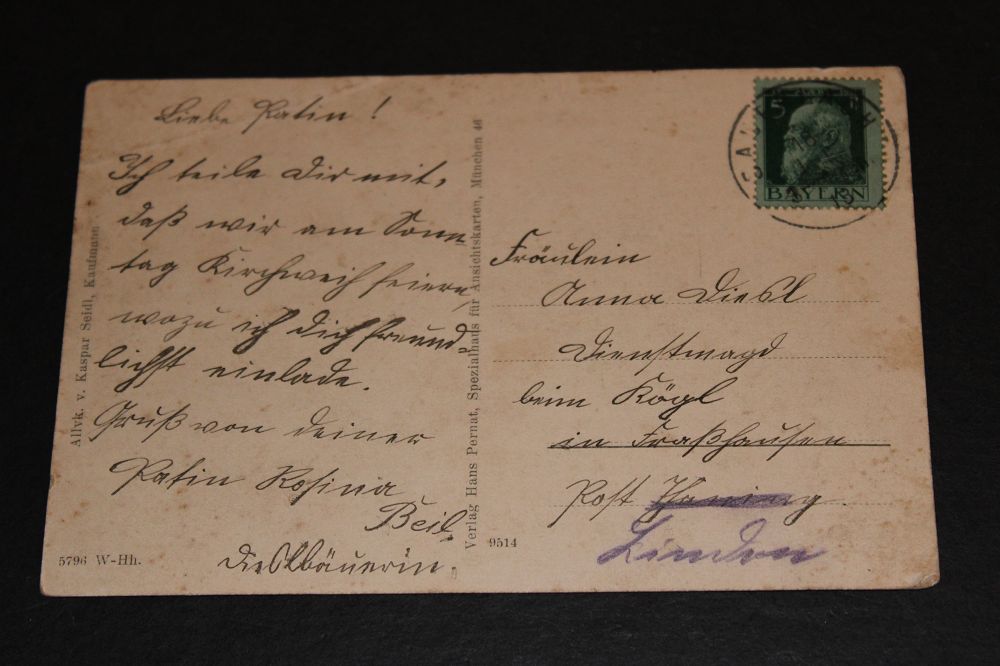 Liebe Patin!
Ich teile Dir mit,
daß wir am Sonn
tag Kirchweih feiern,
wozu ich dich freund
lichst einlade.
Gruß von deiner
Patin Rosina
Beil
5796 W-Hh.
Allvk. v. Kaspar Seidl, Kaufmann
Verlag Hans Pernat, Spezialhaus für Ansichtskarten, München 46
9514
5
BAYERN
Fräulein
Anna Diesl
Dienstmagd
beim Kögl
in Fraßhausen
Post
Linden